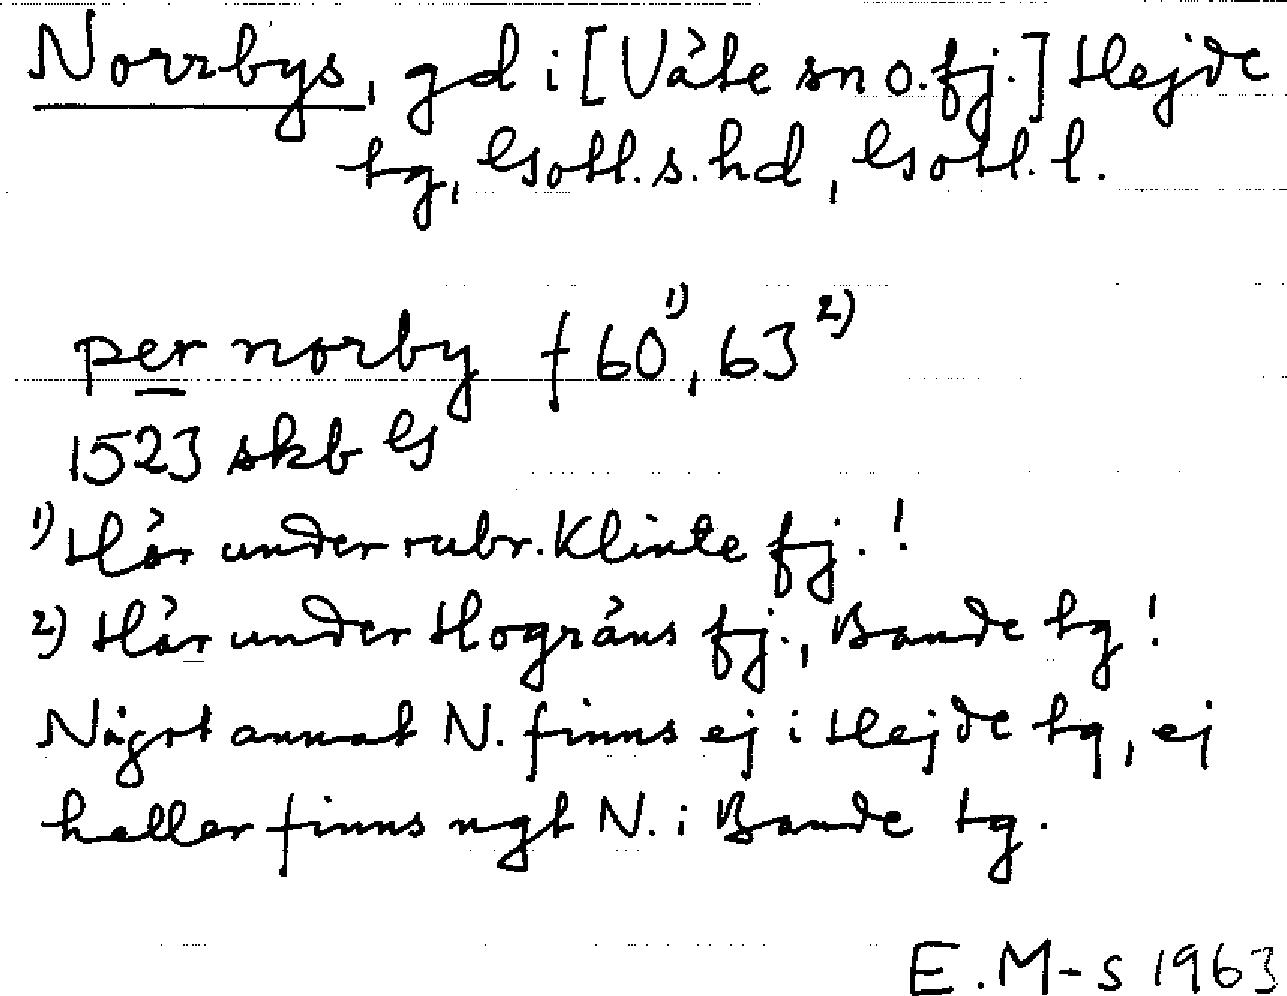 Norrbys, gd i [Väte sn o. fj.] Hejde
tg, Gotl. s. hd, Gotl. l.
per norby f 60 1), 63 2)
1523 skb G
1) Här under rubr. Klinte fj. !
2) Här under Hogräns fj., Bande tg !
Något annat N. finns ej i Hejde tg, ej
heller finns ngt N. i Bande tg.
E. M-s 1963